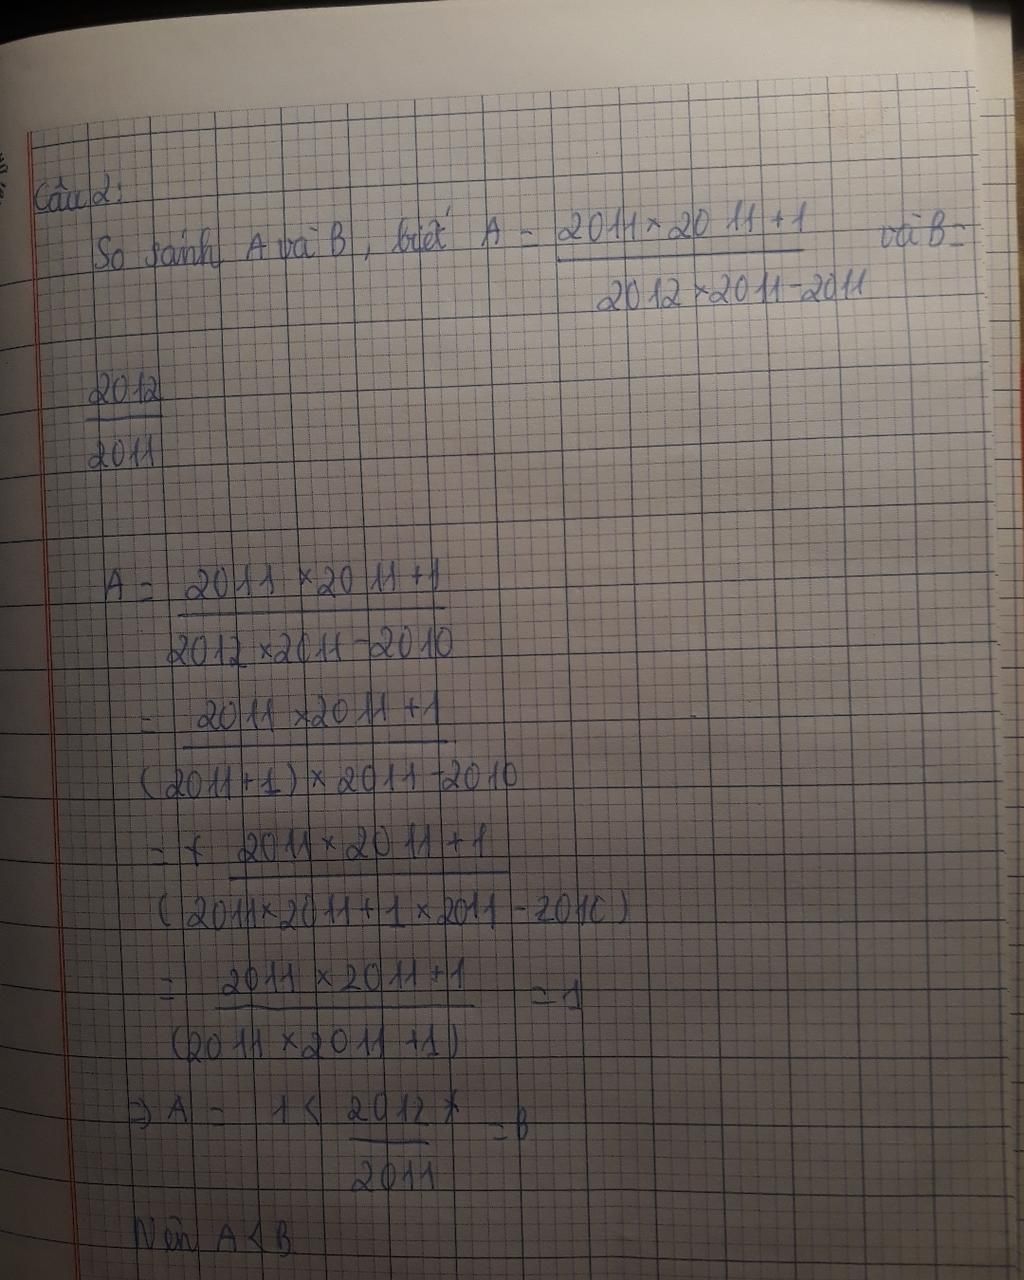 Câu 2:
So sánh A và B, biết A = 2011 × 2011 + 1 và B =
2012 × 2011 - 2011
2012
2011
A = 2011 × 2011 + 1
2012 × 2011 - 2010
= 2011 × 2011 + 1
(2011 + 1) × 2011 - 2010
= 2011 × 2011 + 1
(2011 × 2011 + 1 × 2011 - 2010)
= 2011 × 2011 + 1 = 1
(2011 × 2011 + 1)
⇒ A = 1 < 2012 = B
2011
Nên A < B